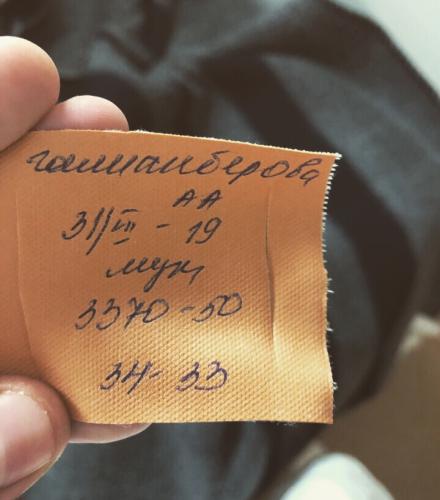 Галианберова
АА
31/III - 19
муж
3370 - 50
34 - 33